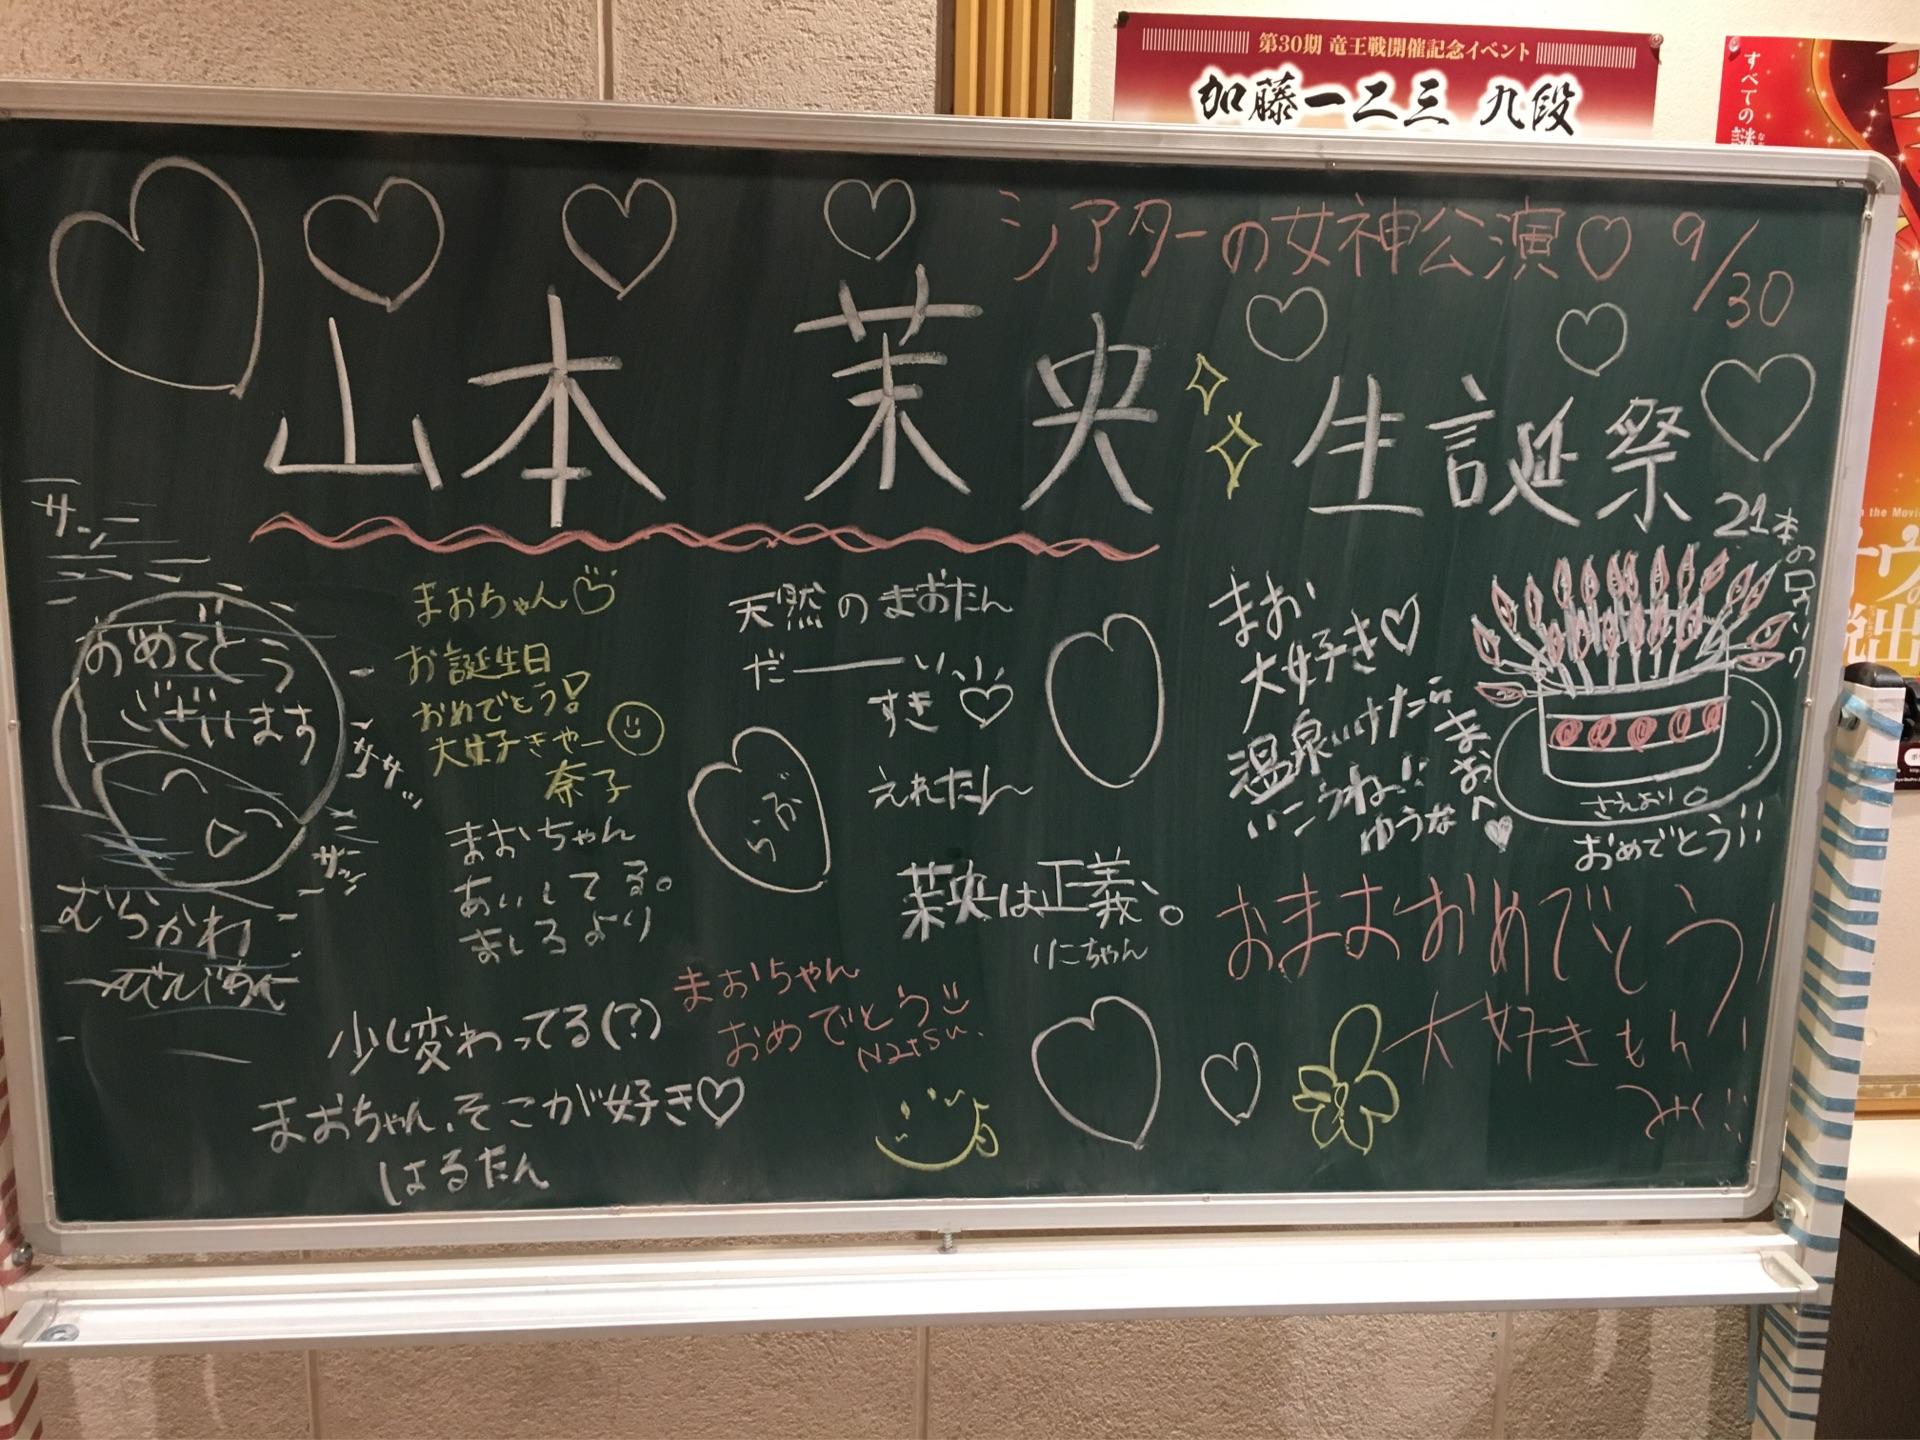 第30期 竜王戦開催記念イベント
加藤一二三 九段
すべての謎
in the Movie
脱出
シアターの女神公演♡ 9/30
山本 茉央 生誕祭
サッ
おめでとう
ございます
ササッ
サッ
むらかわ
びびあん
まおちゃん
お誕生日
おめでとう!
大好きやー
奈子
まおちゃん
あいしてる。
ましろより
少し変わってる(?)
まおちゃん、そこが好き♡
はるたん
天然のまおたん
だ――い
すき♡
えれたん
茉央は正義。
りこちゃん
まおちゃん
おめでとう
Natsu.
まお
大好き♡
温泉いけたら
いこうね!!
ゆうな
まおへ♡
21本のロウソク
さえより
おめでとう!!
おまおおめでとう!
大好きもん!
みく!!